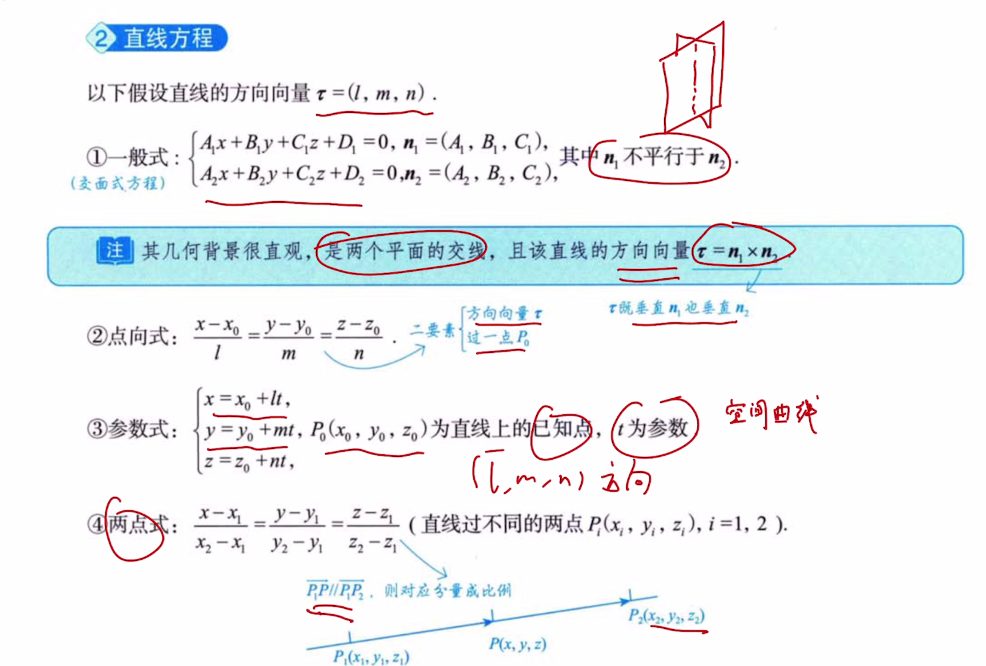 ② 直线方程
以下假设直线的方向向量 τ=(l, m, n).
①一般式: { A₁x+B₁y+C₁z+D₁=0, n₁=(A₁, B₁, C₁),
A₂x+B₂y+C₂z+D₂=0, n₂=(A₂, B₂, C₂), 其中 n₁ 不平行于 n₂.
(交面式方程)
注 其几何背景很直观,是两个平面的交线,且该直线的方向向量 τ=n₁×n₂
τ既垂直n₁也垂直n₂
②点向式: (x-x₀)/l = (y-y₀)/m = (z-z₀)/n. 二要素 { 方向向量 τ
过一点 P₀
③参数式: { x=x₀+lt,
y=y₀+mt, P₀(x₀, y₀, z₀)为直线上的已知点, t为参数
z=z₀+nt,
空间曲线
(l, m, n) 方向
④两点式: (x-x₁)/(x₂-x₁) = (y-y₁)/(y₂-y₁) = (z-z₁)/(z₂-z₁) (直线过不同的两点 Pᵢ(xᵢ, yᵢ, zᵢ), i=1, 2).
P₁P∥P₁P₂, 则对应分量成比例
P₂(x₂, y₂, z₂)
P(x, y, z)
P₁(x₁, y₁, z₁)